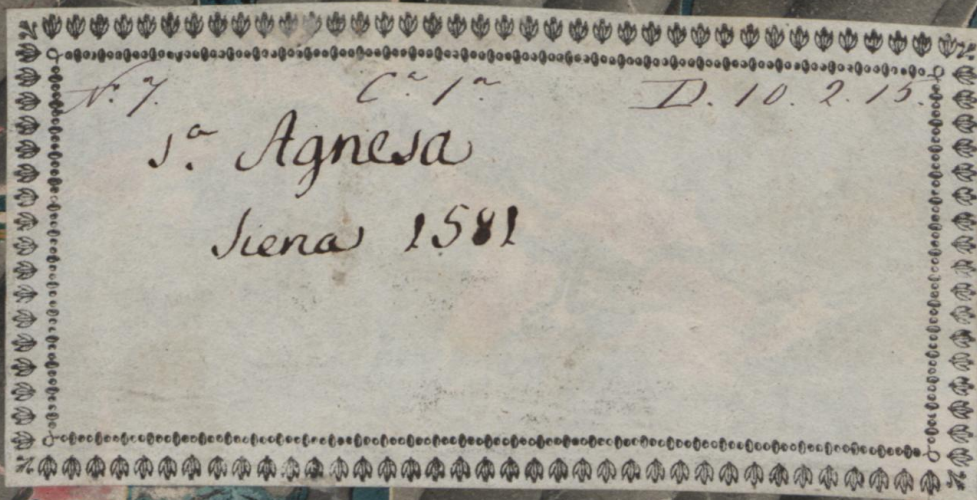 N.º 7. C.ª 1.ª D. 10. 2. 15.
S.ª Agnesa
Siena 1581